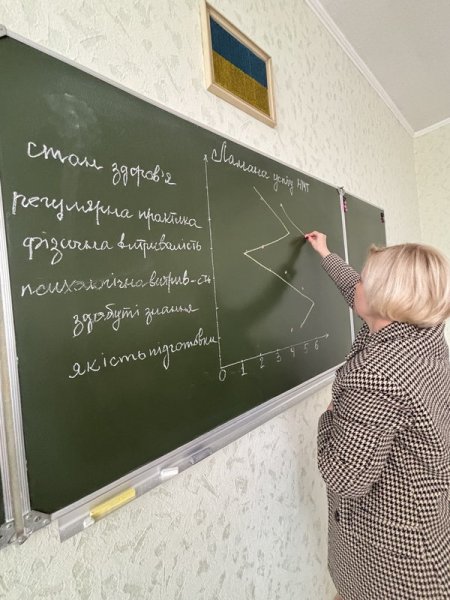 Ламана успіху НМТ
стан здоров'я
регулярна практика
фізична витривалість
психологічна витрив-сть
здобуті знання
якість підготовки
0 1 2 3 4 5 6